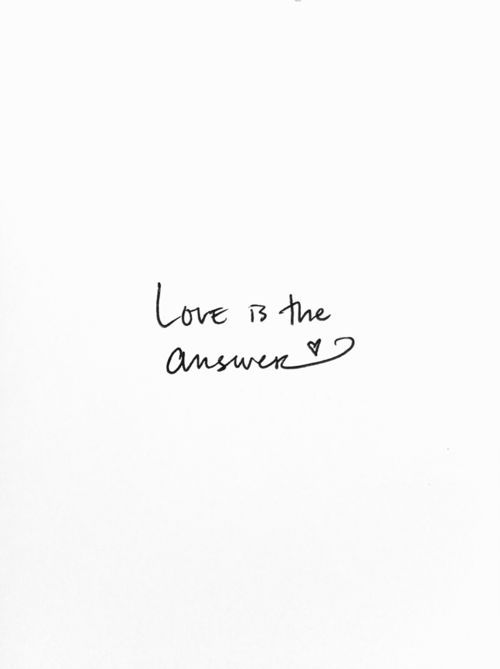 Love is the
answer